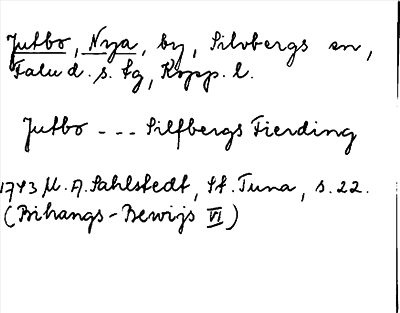 Jutbo, Nya, by, Silvbergs sn,
Falu d. s. tg, Kopp. l.
Jutbo - - - Silfbergs Fierding
1743 M. A. Sahlstedt, St. Tuna, s. 22.
(Bihangs-Bewijs VI)